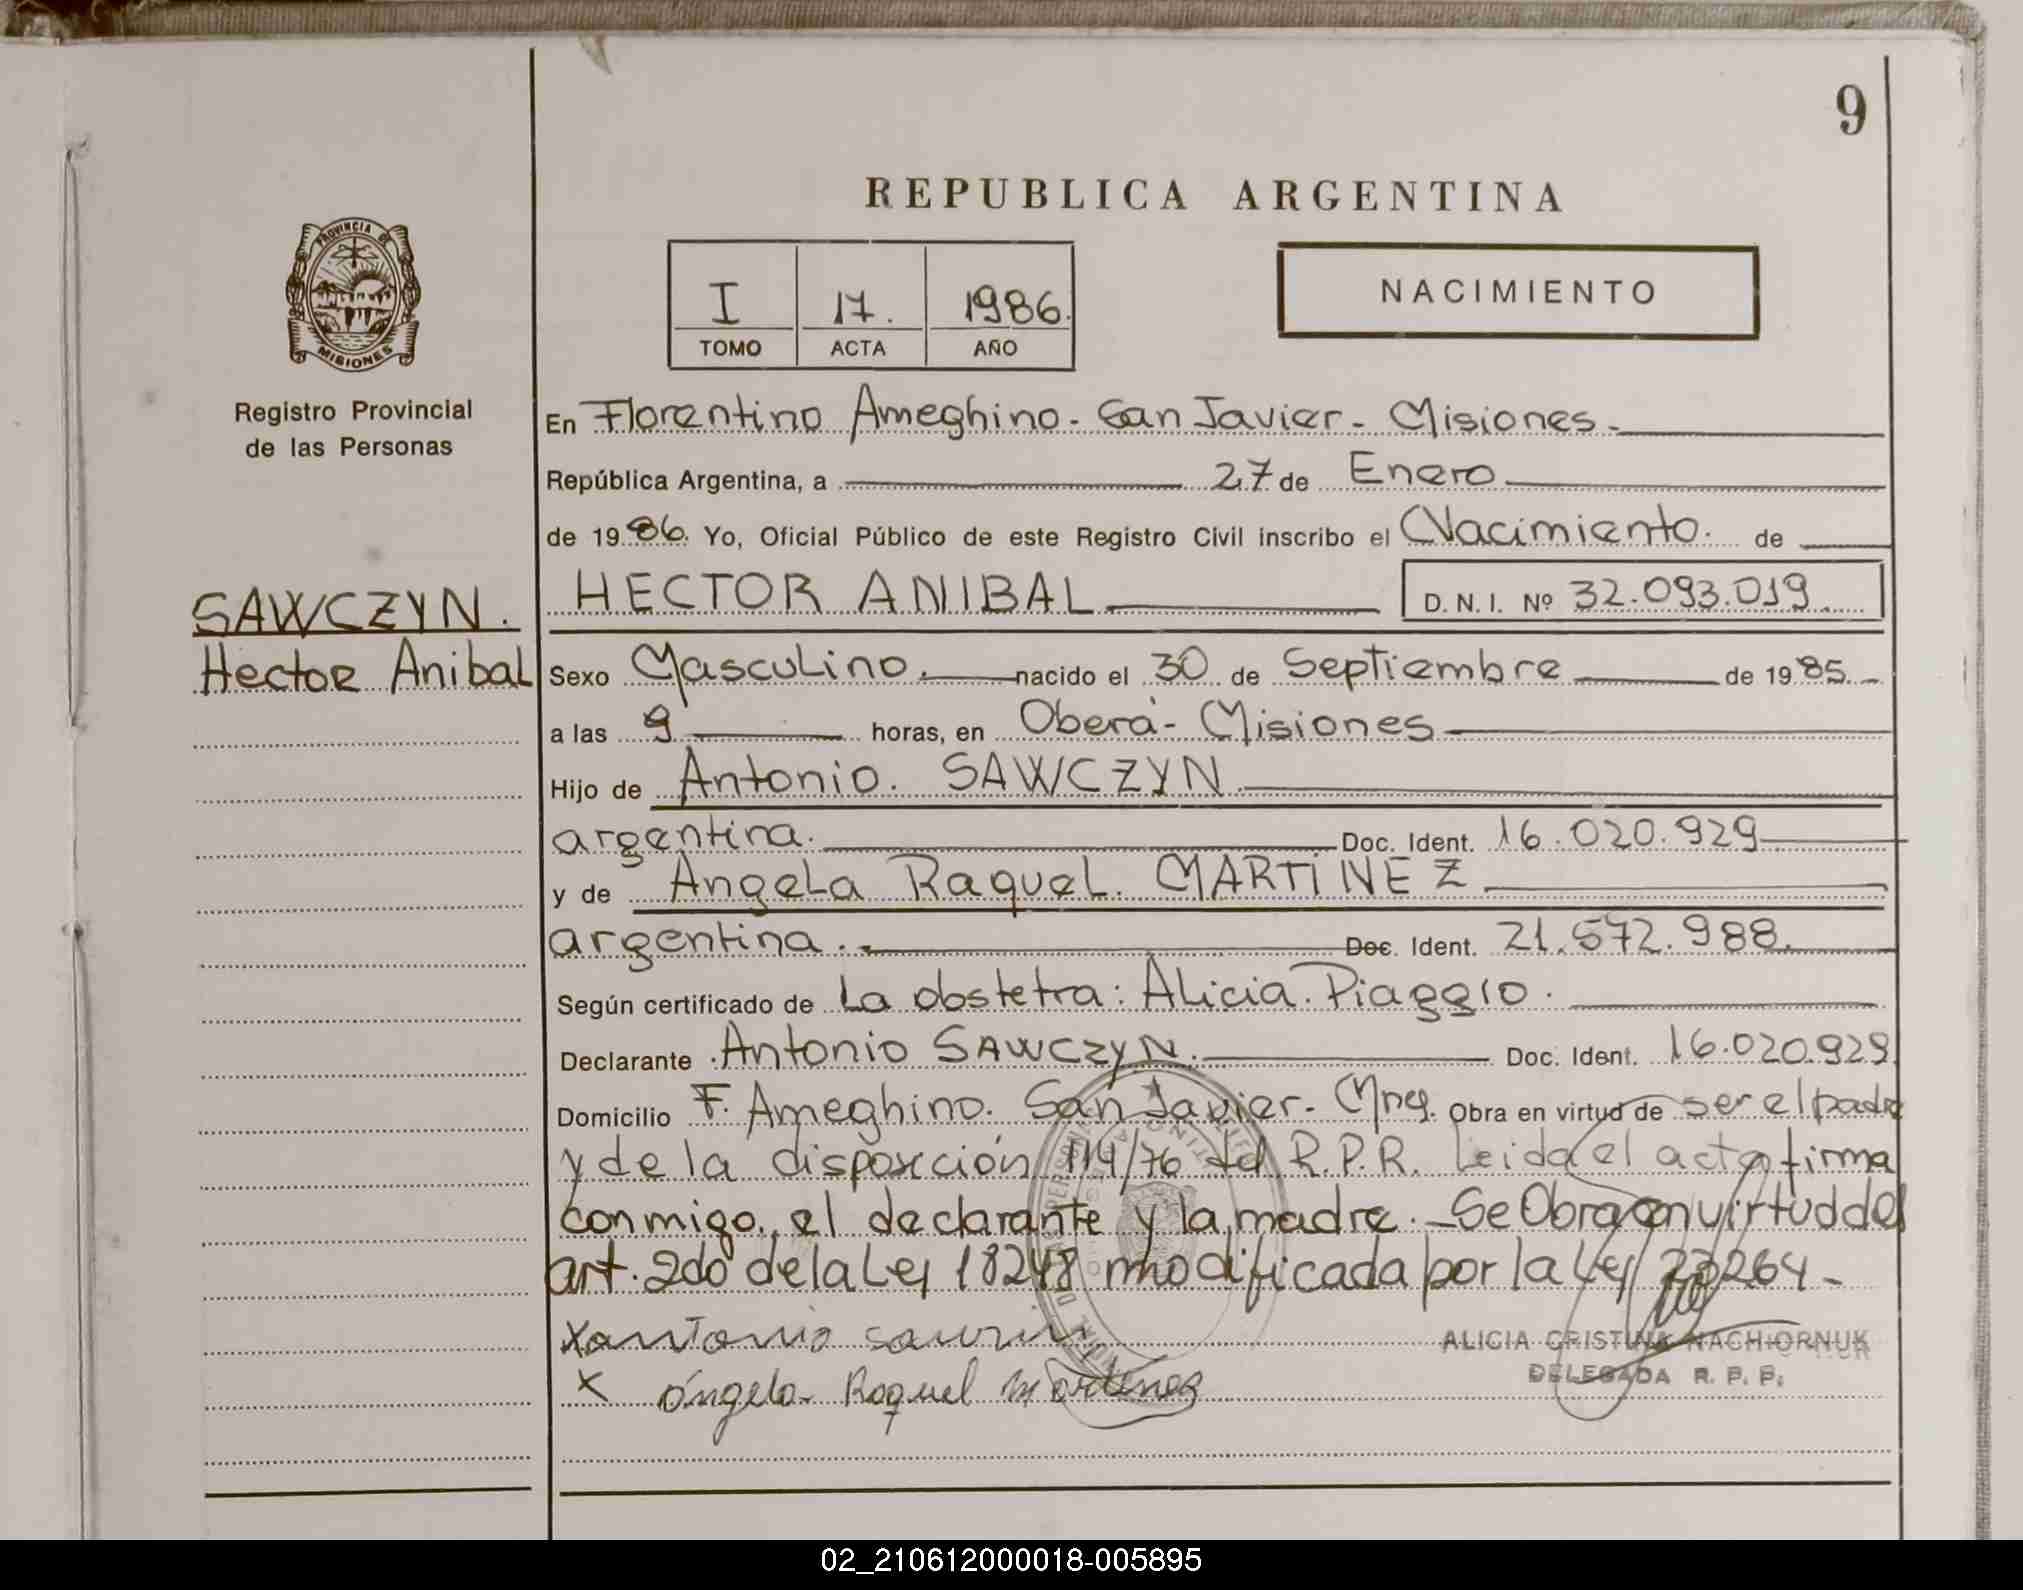 9
REPUBLICA ARGENTINA
PROVINCIA DE
MISIONES
I 17. 1986.
TOMO ACTA AÑO
NACIMIENTO
Registro Provincial
de las Personas
SAWCZYN.
Hector Anibal
En Florentino Ameghino - San Javier - Misiones -
República Argentina, a 27 de Enero
de 1986. Yo, Oficial Público de este Registro Civil inscribo el Nacimiento. de
HECTOR ANIBAL D.N.I. Nº 32.093.019
Sexo Masculino. nacido el 30 de Septiembre de 1985.
a las 9 horas, en Oberá - Misiones
Hijo de Antonio. SAWCZYN
argentina. Doc. Ident. 16.020.929
y de Angela Raquel. MARTINEZ
argentina. Doc. Ident. 21.572.988.
Según certificado de la obstetra: Alicia. Piaggio.
Declarante Antonio SAWCZYN. Doc. Ident. 16.020.929
Domicilio F. Ameghino. San Javier - Mnes. Obra en virtud de ser el padre
y de la disposición 114/76 del R.P.R. Leida el acta firma
conmigo, el declarante y la madre. - Se Obra en virtud del
art. 2do de la Ley 18248 modificada por la Ley 23264 -
X antonio
X ángela Raquel Martinez
ALICIA CRISTINA NACHORNUK
DELEGADA R. P. P.
02_210612000018-005895